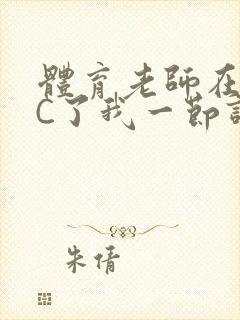 體育老師在
C了我一節
朱倩